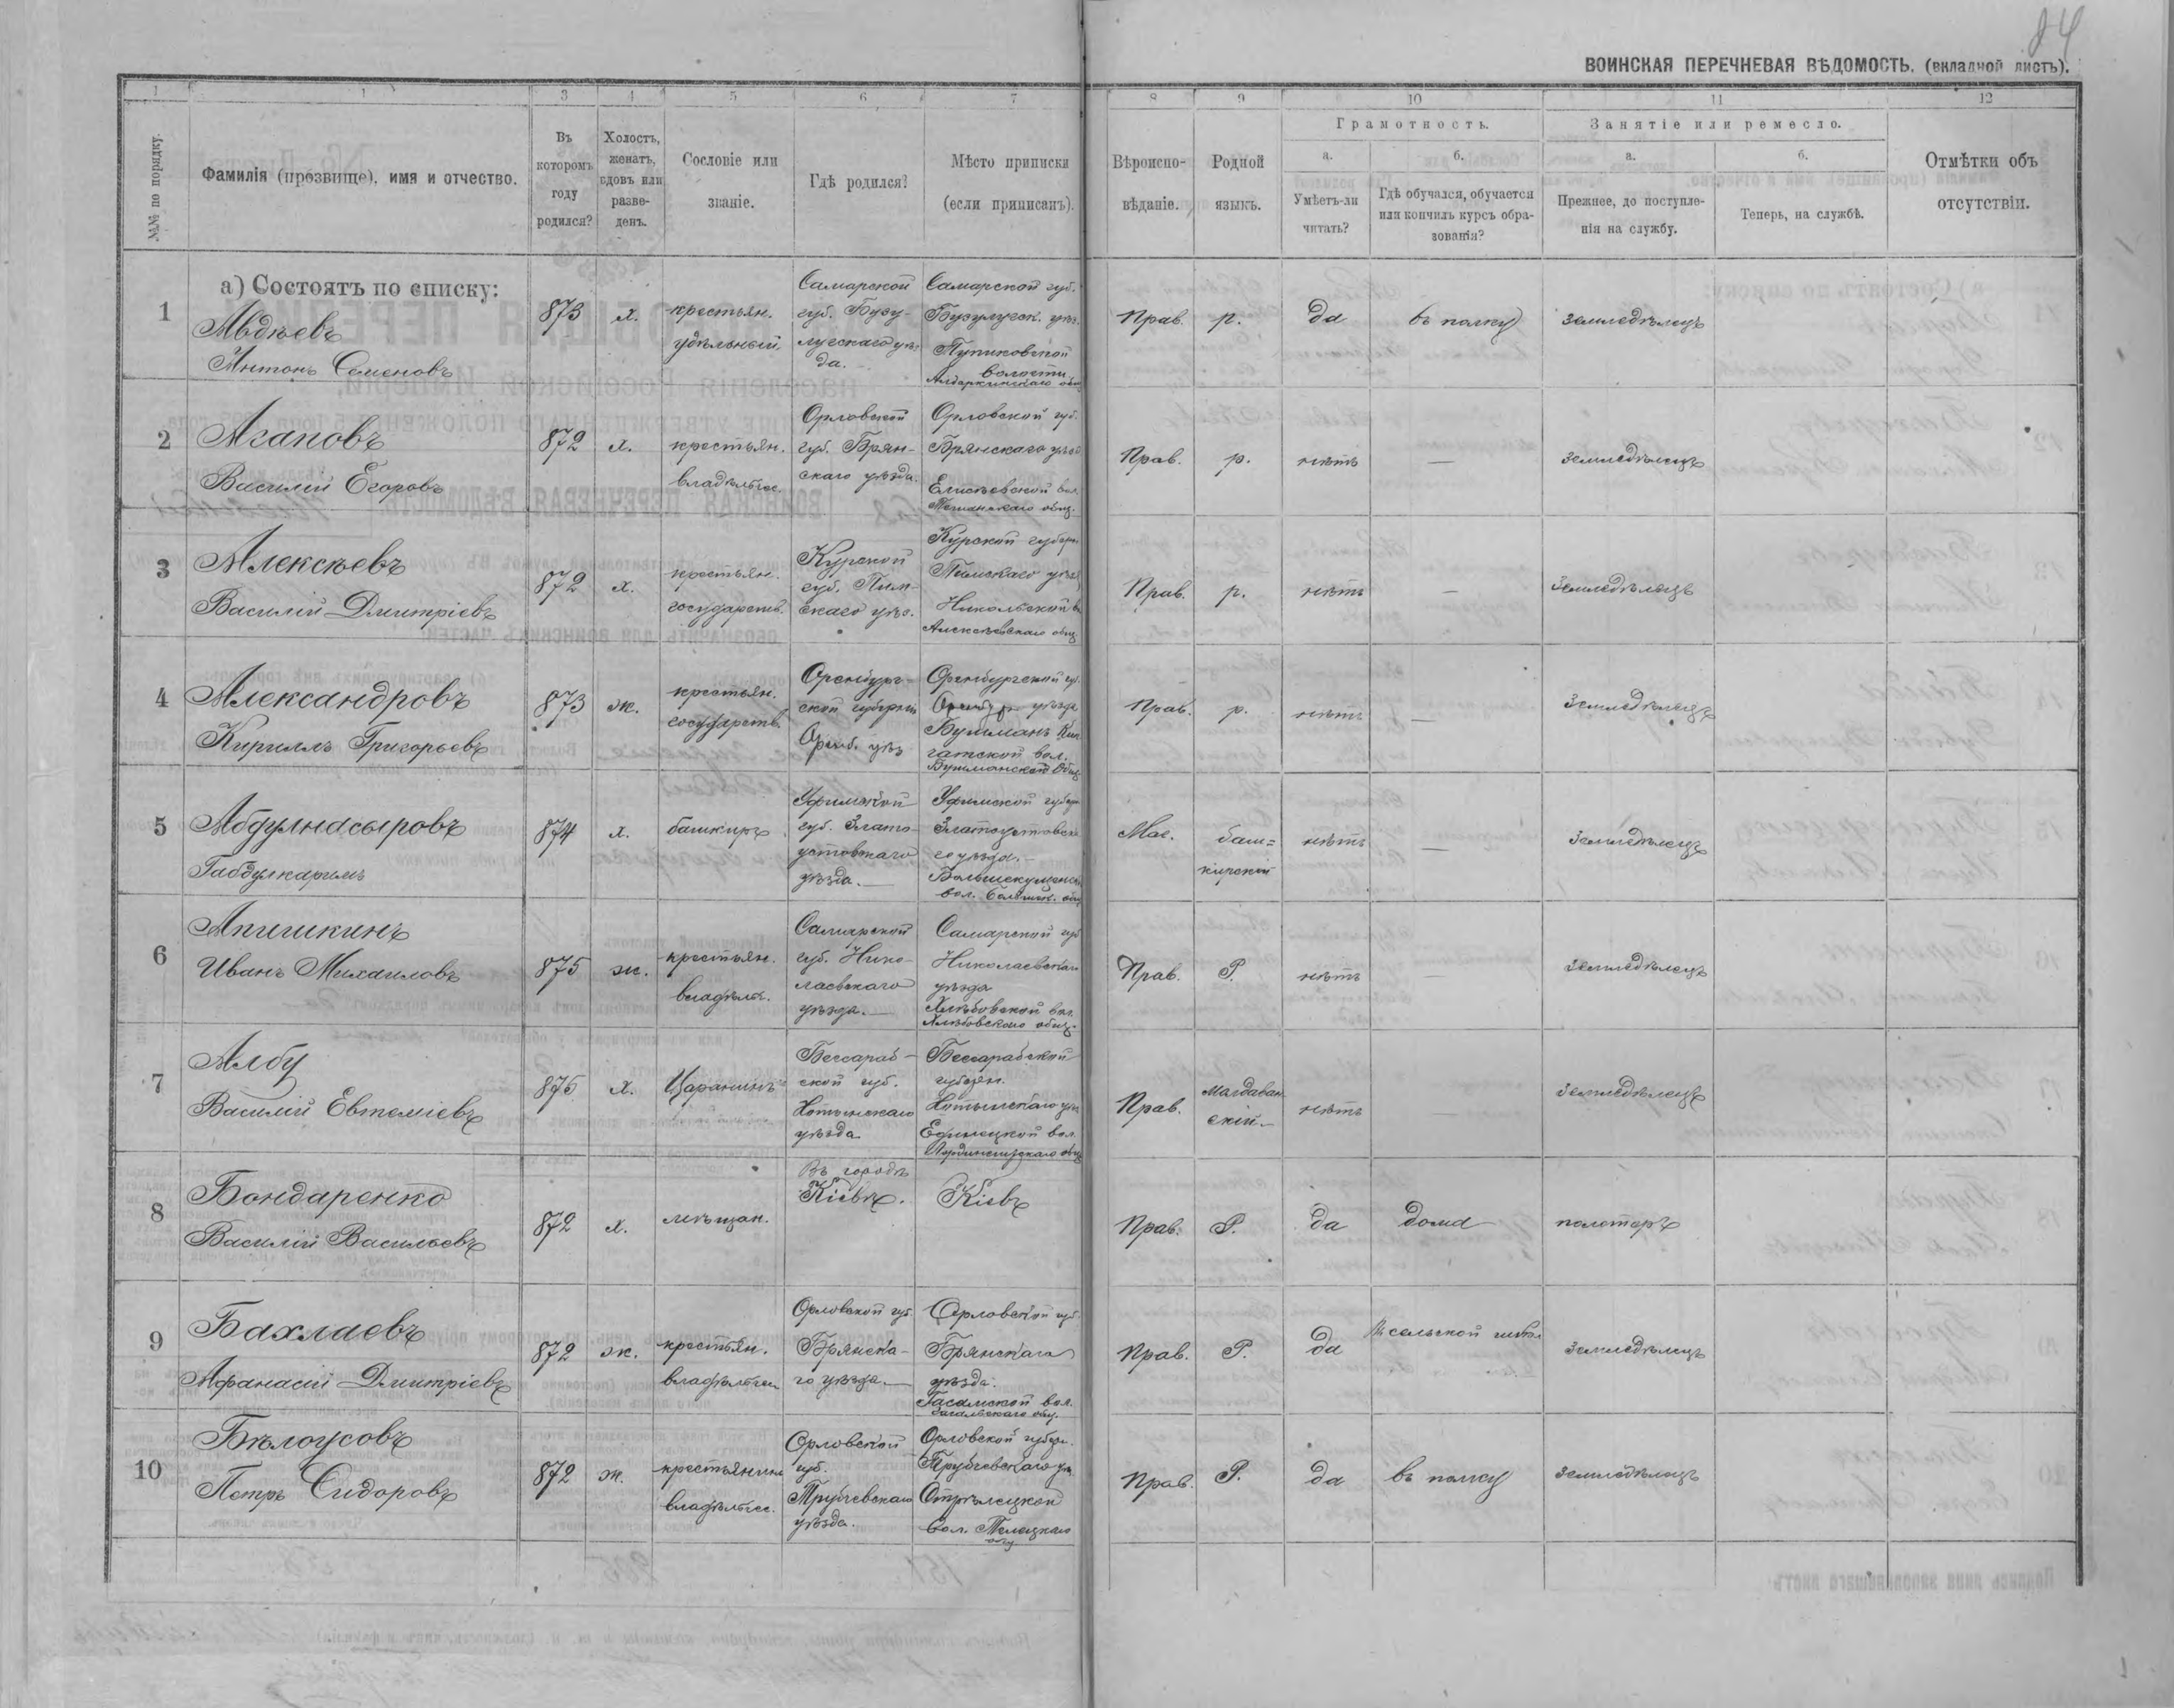 84
ВОИНСКАЯ ПЕРЕЧНЕВАЯ ВѢДОМОСТЬ. (вкладной листъ).
1 3 4 5 6 7 8 9 10 11 12
№№ по порядку.
Фамилія (прозвище), имя и отчество.
Въ которомъ году родился?
Холостъ, женатъ, вдовъ или разведенъ.
Сословіе или званіе.
Гдѣ родился?
Мѣсто приписки (если приписанъ).
Вѣроисповѣданіе.
Родной языкъ.
Грамотность.
а. Умѣетъ-ли читать?
б. Гдѣ обучался, обучается или кончилъ курсъ образованія?
Занятіе или ремесло.
а. Прежнее, до поступленія на службу.
б. Теперь, на службѣ.
Отмѣтки объ отсутствіи.
а) Состоятъ по списку:
1
Авдѣевъ
Антонъ Семеновъ
873
х.
крестьян.
удѣльный
Самарской
губ. Бузу-
лускаго уѣз
да.
Самарской губ.
Бузулуск. уѣз.
волости
Прав.
р.
да
въ полку
земледѣлецъ
2
Агаповъ
Василій Егоровъ
872
х.
крестьян.
владѣльчес.
Орловской
губ. Брян-
скаго уѣзда.
Орловской губ.
Брянскаго уѣзд
Прав.
р.
нѣтъ
—
земледѣлецъ
3
Алексѣевъ
Василій Дмитріевъ
872
х.
крестьян.
государств.
Курской
губ. Тим-
скаго уѣз.
Курской губерн
Тимскаго уѣзд
Никольской в
Алексѣевскаго общ.
Прав.
р.
нѣтъ
—
земледѣлецъ
4
Александровъ
Кириллъ Григорьевъ
873
ж.
крестьян.
государств.
Оренбург-
ской губерніи
Оренб. уѣз
Оренбургской гу.
Оренбур уѣзда
вол.
Прав.
р.
нѣтъ
—
земледѣлецъ
5
Абдулнасыровъ
Габдулкаримъ
874
х.
башкиръ
Уфимской
губ. Злато-
устовскаго
уѣзда.—
Уфимской губерн
Златоустовска
го уѣзда.—
вол.
Маг.
баш=
кирской
нѣтъ
—
земледѣлецъ
6
Апишкинъ
Иванъ Михаиловъ
875
ж.
крестьян.
владѣль.
Самарской
губ. Нико-
лаевскаго
уѣзда.—
Самарской губ
Николаевскаго
уѣзда
Хлѣбовской вол.
Хлѣбовскаго общ.
Прав.
Р.
нѣтъ
—
земледѣлецъ
7
Албу
Василій Евтеміевъ
875
х.
Царанинъ
Бессараб-
ской губ.
Хотинскаго
уѣзда
Бессарабской
губерн.
Хотинскаго уѣз
вол.
Прав.
Малдаван
скій—
нѣтъ
—
земледѣлецъ
8
Бондаренко
Василій Васильевъ
872
х.
мѣщан.
Въ городѣ
Кіевѣ.
Кіевъ
Прав.
Р.
да
дома
полотеръ
9
Бахлаевъ
Афанасій Дмитріевъ
872
ж.
крестьян.
владѣльчес
Орловской губ.
Брянска-
го уѣзда.—
Орловской губ.
Брянскаго
уѣзда.
вол.
Прав.
Р.
да
Въ сельской школ
земледѣлецъ
10
Бѣлоусовъ
Петръ Сидоровъ
872
ж.
крестьянинъ
владѣльчес.
Орловской
губ.
Трубчевскаго
уѣзда.
Орловской губерн.
Трубчевскаго уѣз
Стрѣлецкой
вол. Телецкаго
общ
Прав.
Р.
да
въ полку
земледѣлецъ